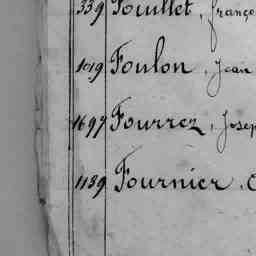 339 Fouillet, franço
1019 Foulon, Jean
1697 Fourrez, Josep
1189 Fournier, C